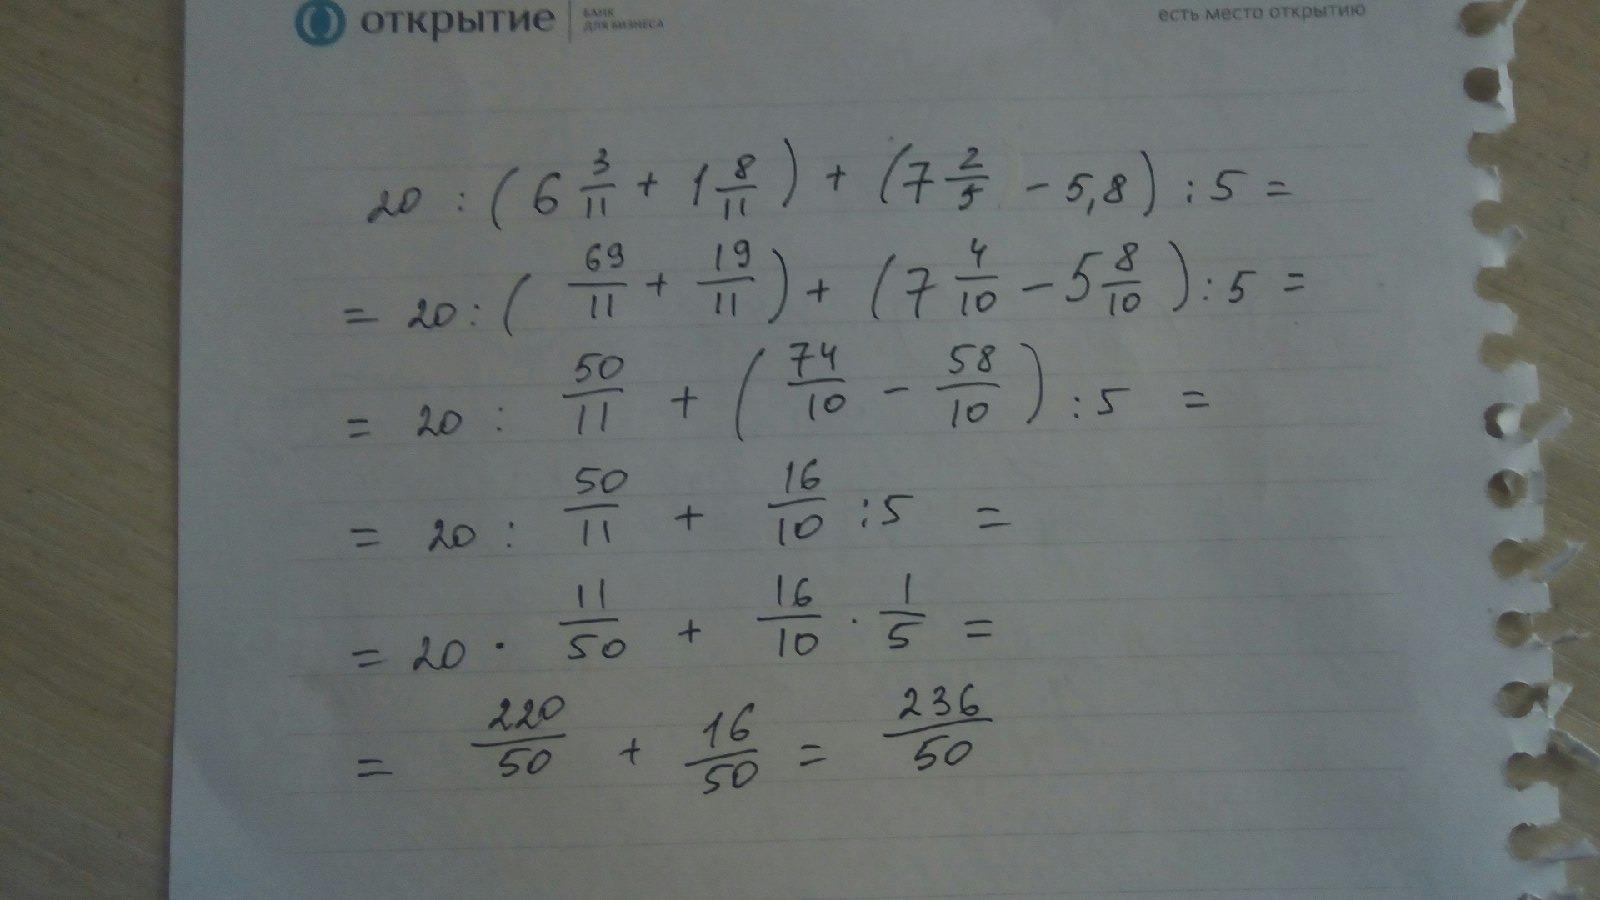 открытие БАНК ДЛЯ БИЗНЕСА есть место открытию
20 : (6 3/11 + 1 8/11) + (7 2/5 - 5,8) : 5 =
= 20 : (69/11 + 19/11) + (7 4/10 - 5 8/10) : 5 =
= 20 : 50/11 + (74/10 - 58/10) : 5 =
= 20 : 50/11 + 16/10 : 5 =
= 20 · 11/50 + 16/10 · 1/5 =
= 220/50 + 16/50 = 236/50